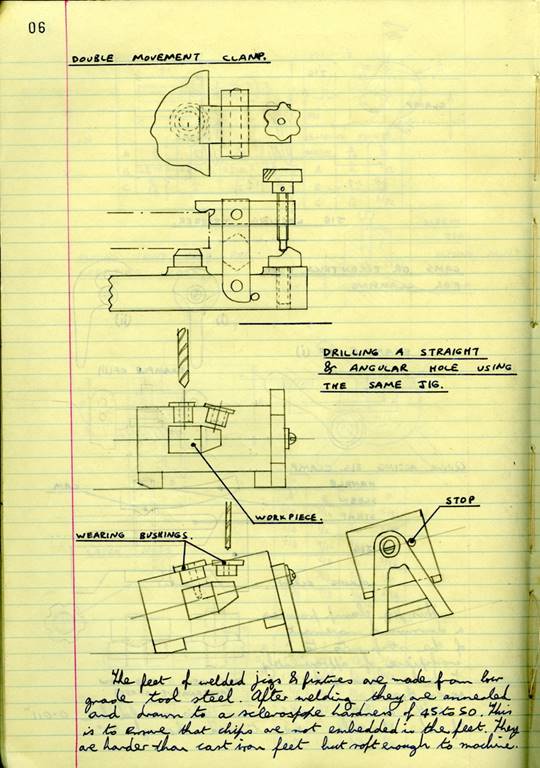 06
DOUBLE MOVEMENT CLAMP.
DRILLING A STRAIGHT
& ANGULAR HOLE USING
THE SAME JIG.
WORKPIECE.
STOP
WEARING BUSHINGS.
The feet of welded jigs & fixtures are made from low
grade tool steel. After welding they are annealed
and drawn to a sclerosfope hardness of 45 to 50. This
is to ensure that chips are not embedded in the feet. They
are harder than cast iron feet but soft enough to machine.